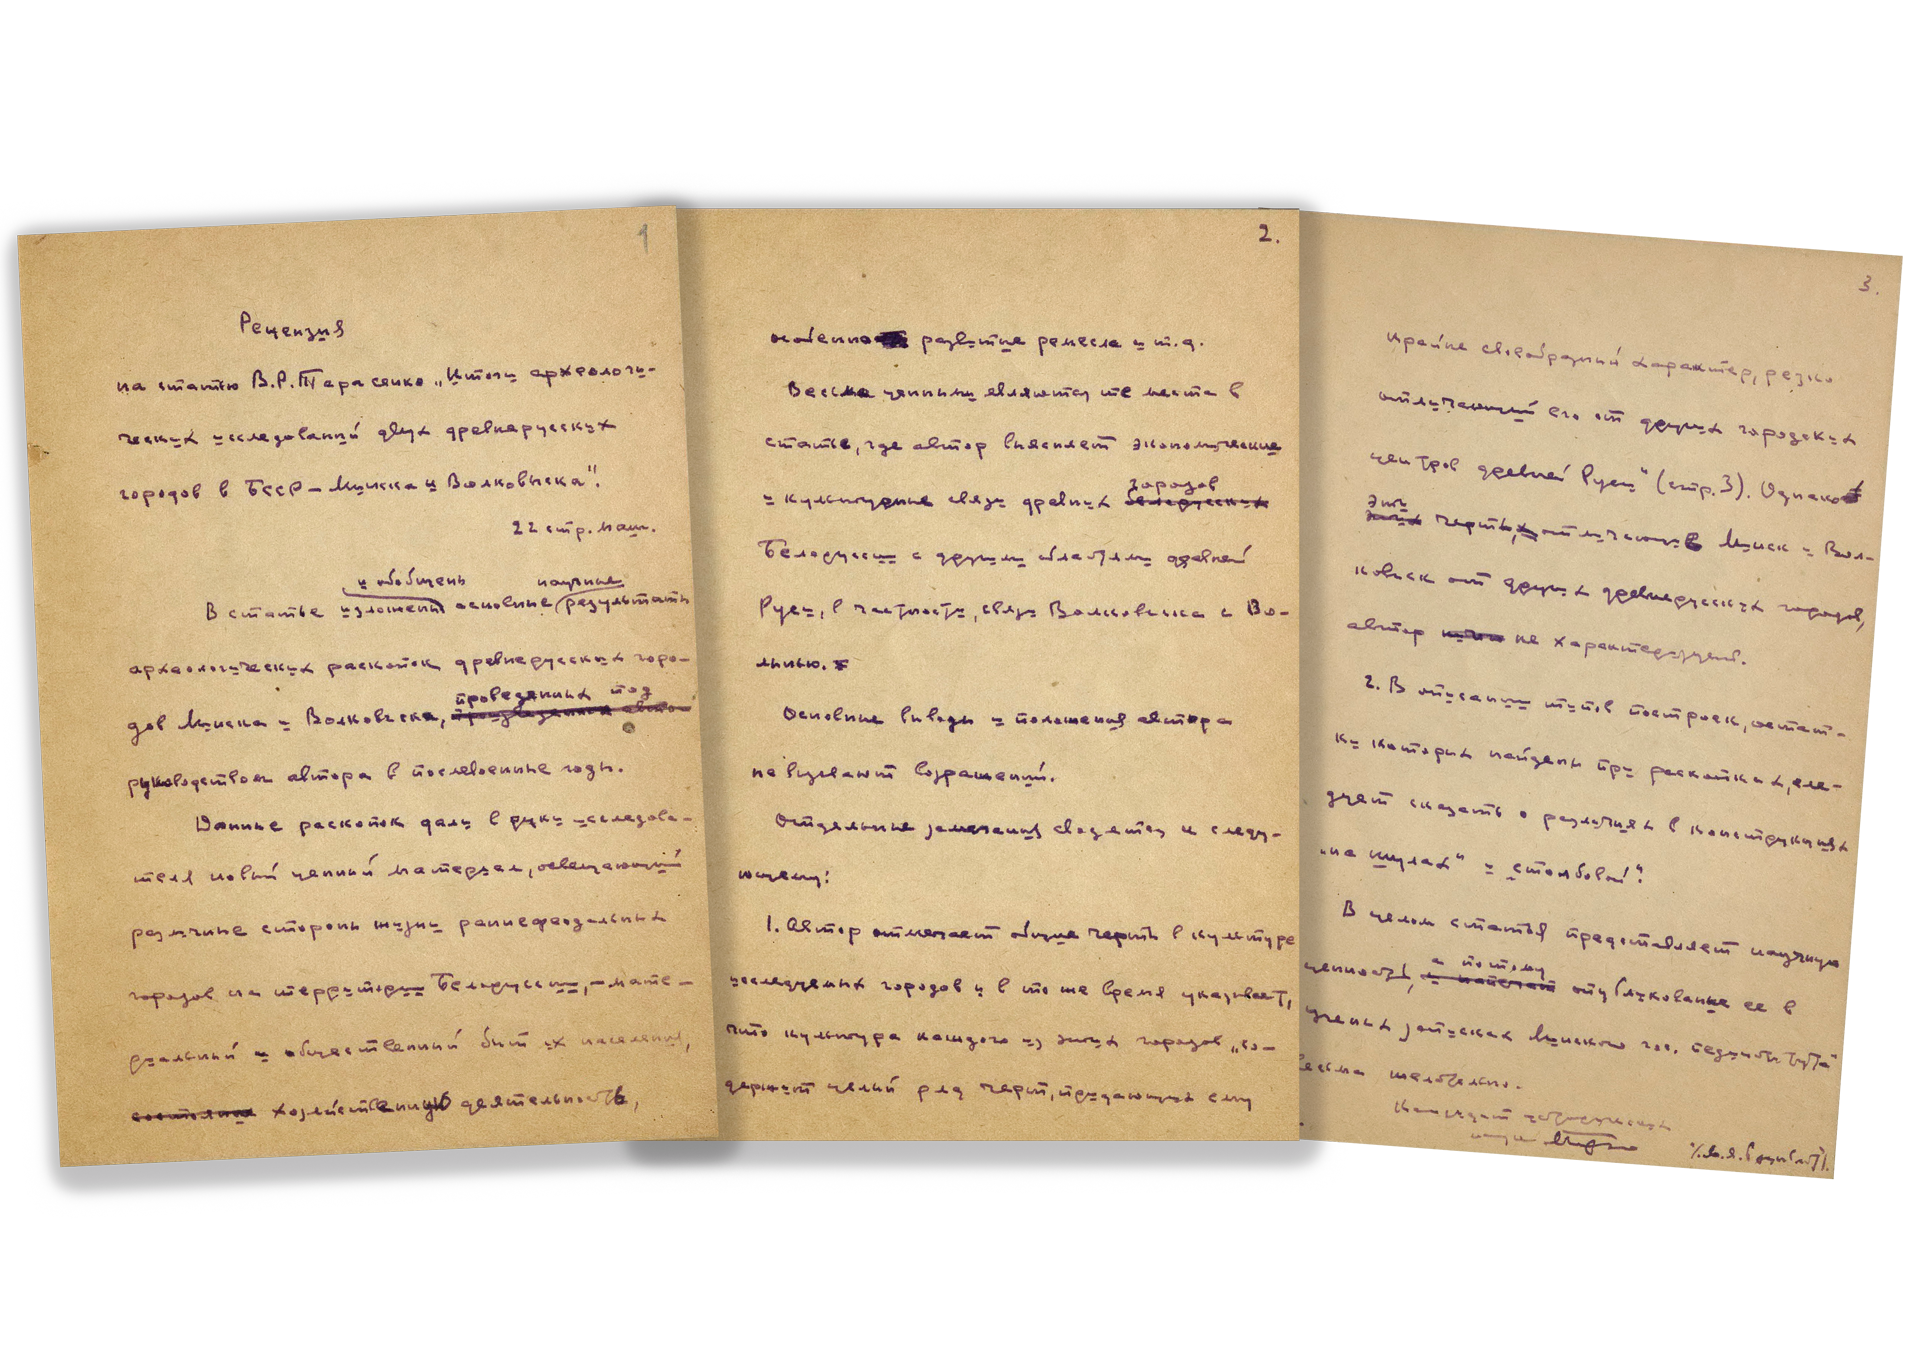 1
Рецензия
на статью В.Р. Тарасенко „Итоги археологи-
ческих исследований двух древнерусских
городов в БССР – Минска и Волковыска“.
22 стр. маш.
и обобщены научные
В статье изложены основные результаты
археологических раскопок древнерусских горо-
проведенных под
дов Минска и Волковыска, произведенных авто-
руководством автора в послевоенные годы.
Данные раскопок дали в руки исследова-
теля новый ценный материал, освещающий
различные стороны жизни раннефеодальных
городов на территории Белоруссии, – мате-
риальный и общественный быт их населения,
состояние хозяйственную деятельность,
2.
особенно развитие ремесла и т.д.
Весьма ценными являются те места в
статье, где автор выясняет экономические
городов
и культурные связи древних белорусских
Белоруссии с другими областями древней
Руси, в частности, связи Волковыска с Во-
лынью.
Основные выводы и положения автора
не вызывают возражений.
Отдельные замечания сводятся к следу-
ющему:
1. Автор отмечает общие черты в культуре
исследуемых городов и в то же время указывает,
что культура каждого из этих городов „со-
держит целый ряд черт, придающих ему
3.
крайне своеобразный характер, резко
отличающий его от других городских
центров древней Руси“ (стр. 3). Однако
эти
этих черты, отличающие Минск и Вол-
ковыск от других древнерусских городов,
автор не характеризует.
2. В описании типов построек, остат-
ки которых найдены при раскопках, сле-
дует сказать о различиях в конструкциях
„на шулах“ и „столбовой“.
В целом статья представляет научную
а потому
ценность, и напечат опубликование ее в
ученых записках Минского гос. пединститута
весьма желательно.
Кандидат исторических
наук